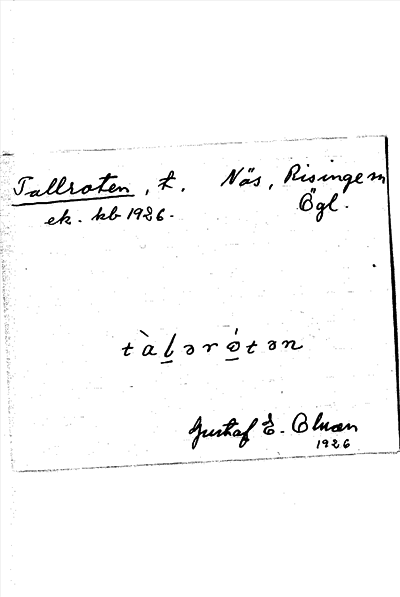 Tallroten, t. Näs, Risinge sn
ek. kb 1926. Ögl.
tàlərótən
Gustaf E. Olman
1926